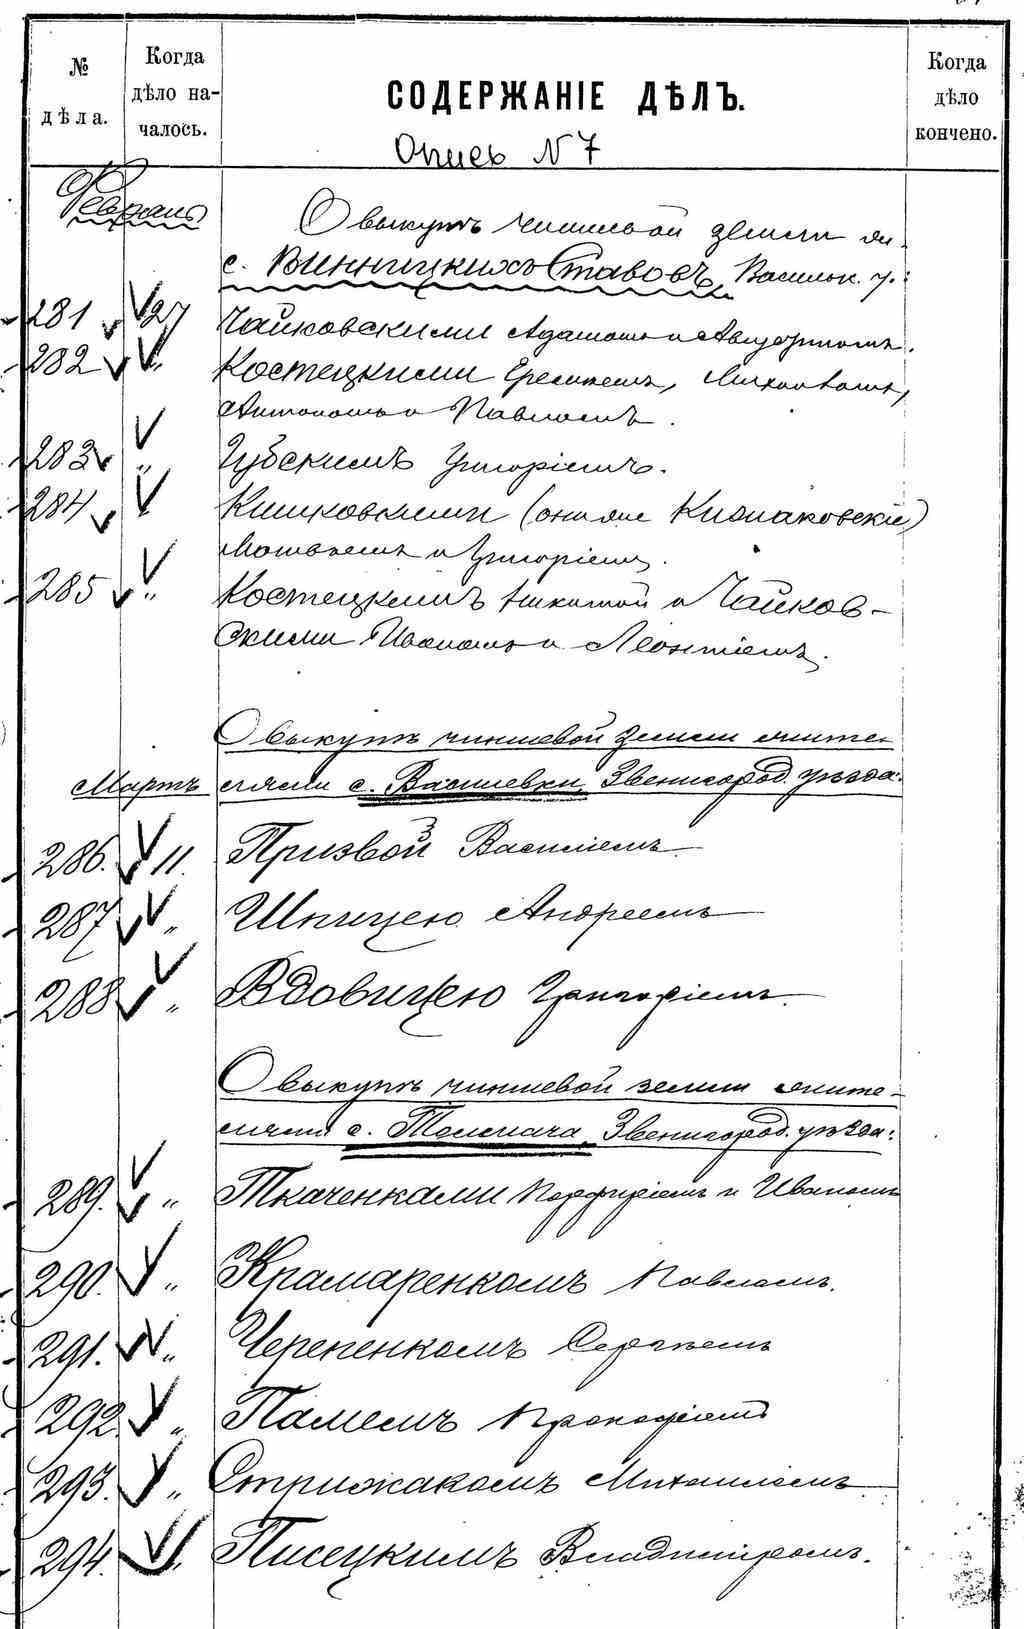 № дѣла.
Когда дѣло началось.
СОДЕРЖАНІЕ ДѢЛЪ.
Когда дѣло кончено.
Опись N 7
Февраль
О выкупѣ чиншевой земли жи.
с. Винницкихъ Ставовъ, Васильк. у.:
281 27 Чайковскими Адамомъ и Августиномъ.
282 „ Костецкими Еремѣемъ,
Антономъ и Павломъ.
283 „ Губскимъ Григоріемъ.
284 „ (они же Кизнаковскіе)
Матвѣемъ и Григоріемъ.
285 „ Костецкимъ Никитой и Чайков-
скими Иваномъ и Леонтіемъ.
О выкупѣ чиншевой земли жите-
Мартъ лями с. Василевки, Звенигород. уѣзда:
286. 11. Призвой Василіемъ.
287 „ Шпицею Андреемъ
288 „ Вдовицею Григоріемъ.
О выкупѣ чиншевой земли жите-
лями с. Толмача, Звенигород. уѣзда:
289. „ Ткаченками Порфиріемъ и Иваномъ
290. „ Крамаренкомъ Павломъ.
291. „ Черепенкомъ Сергѣемъ
292. „ Памемъ Прокофіемъ
293. „ Стрижакомъ Михаиломъ
294. „ Писецкимъ Владиміромъ.